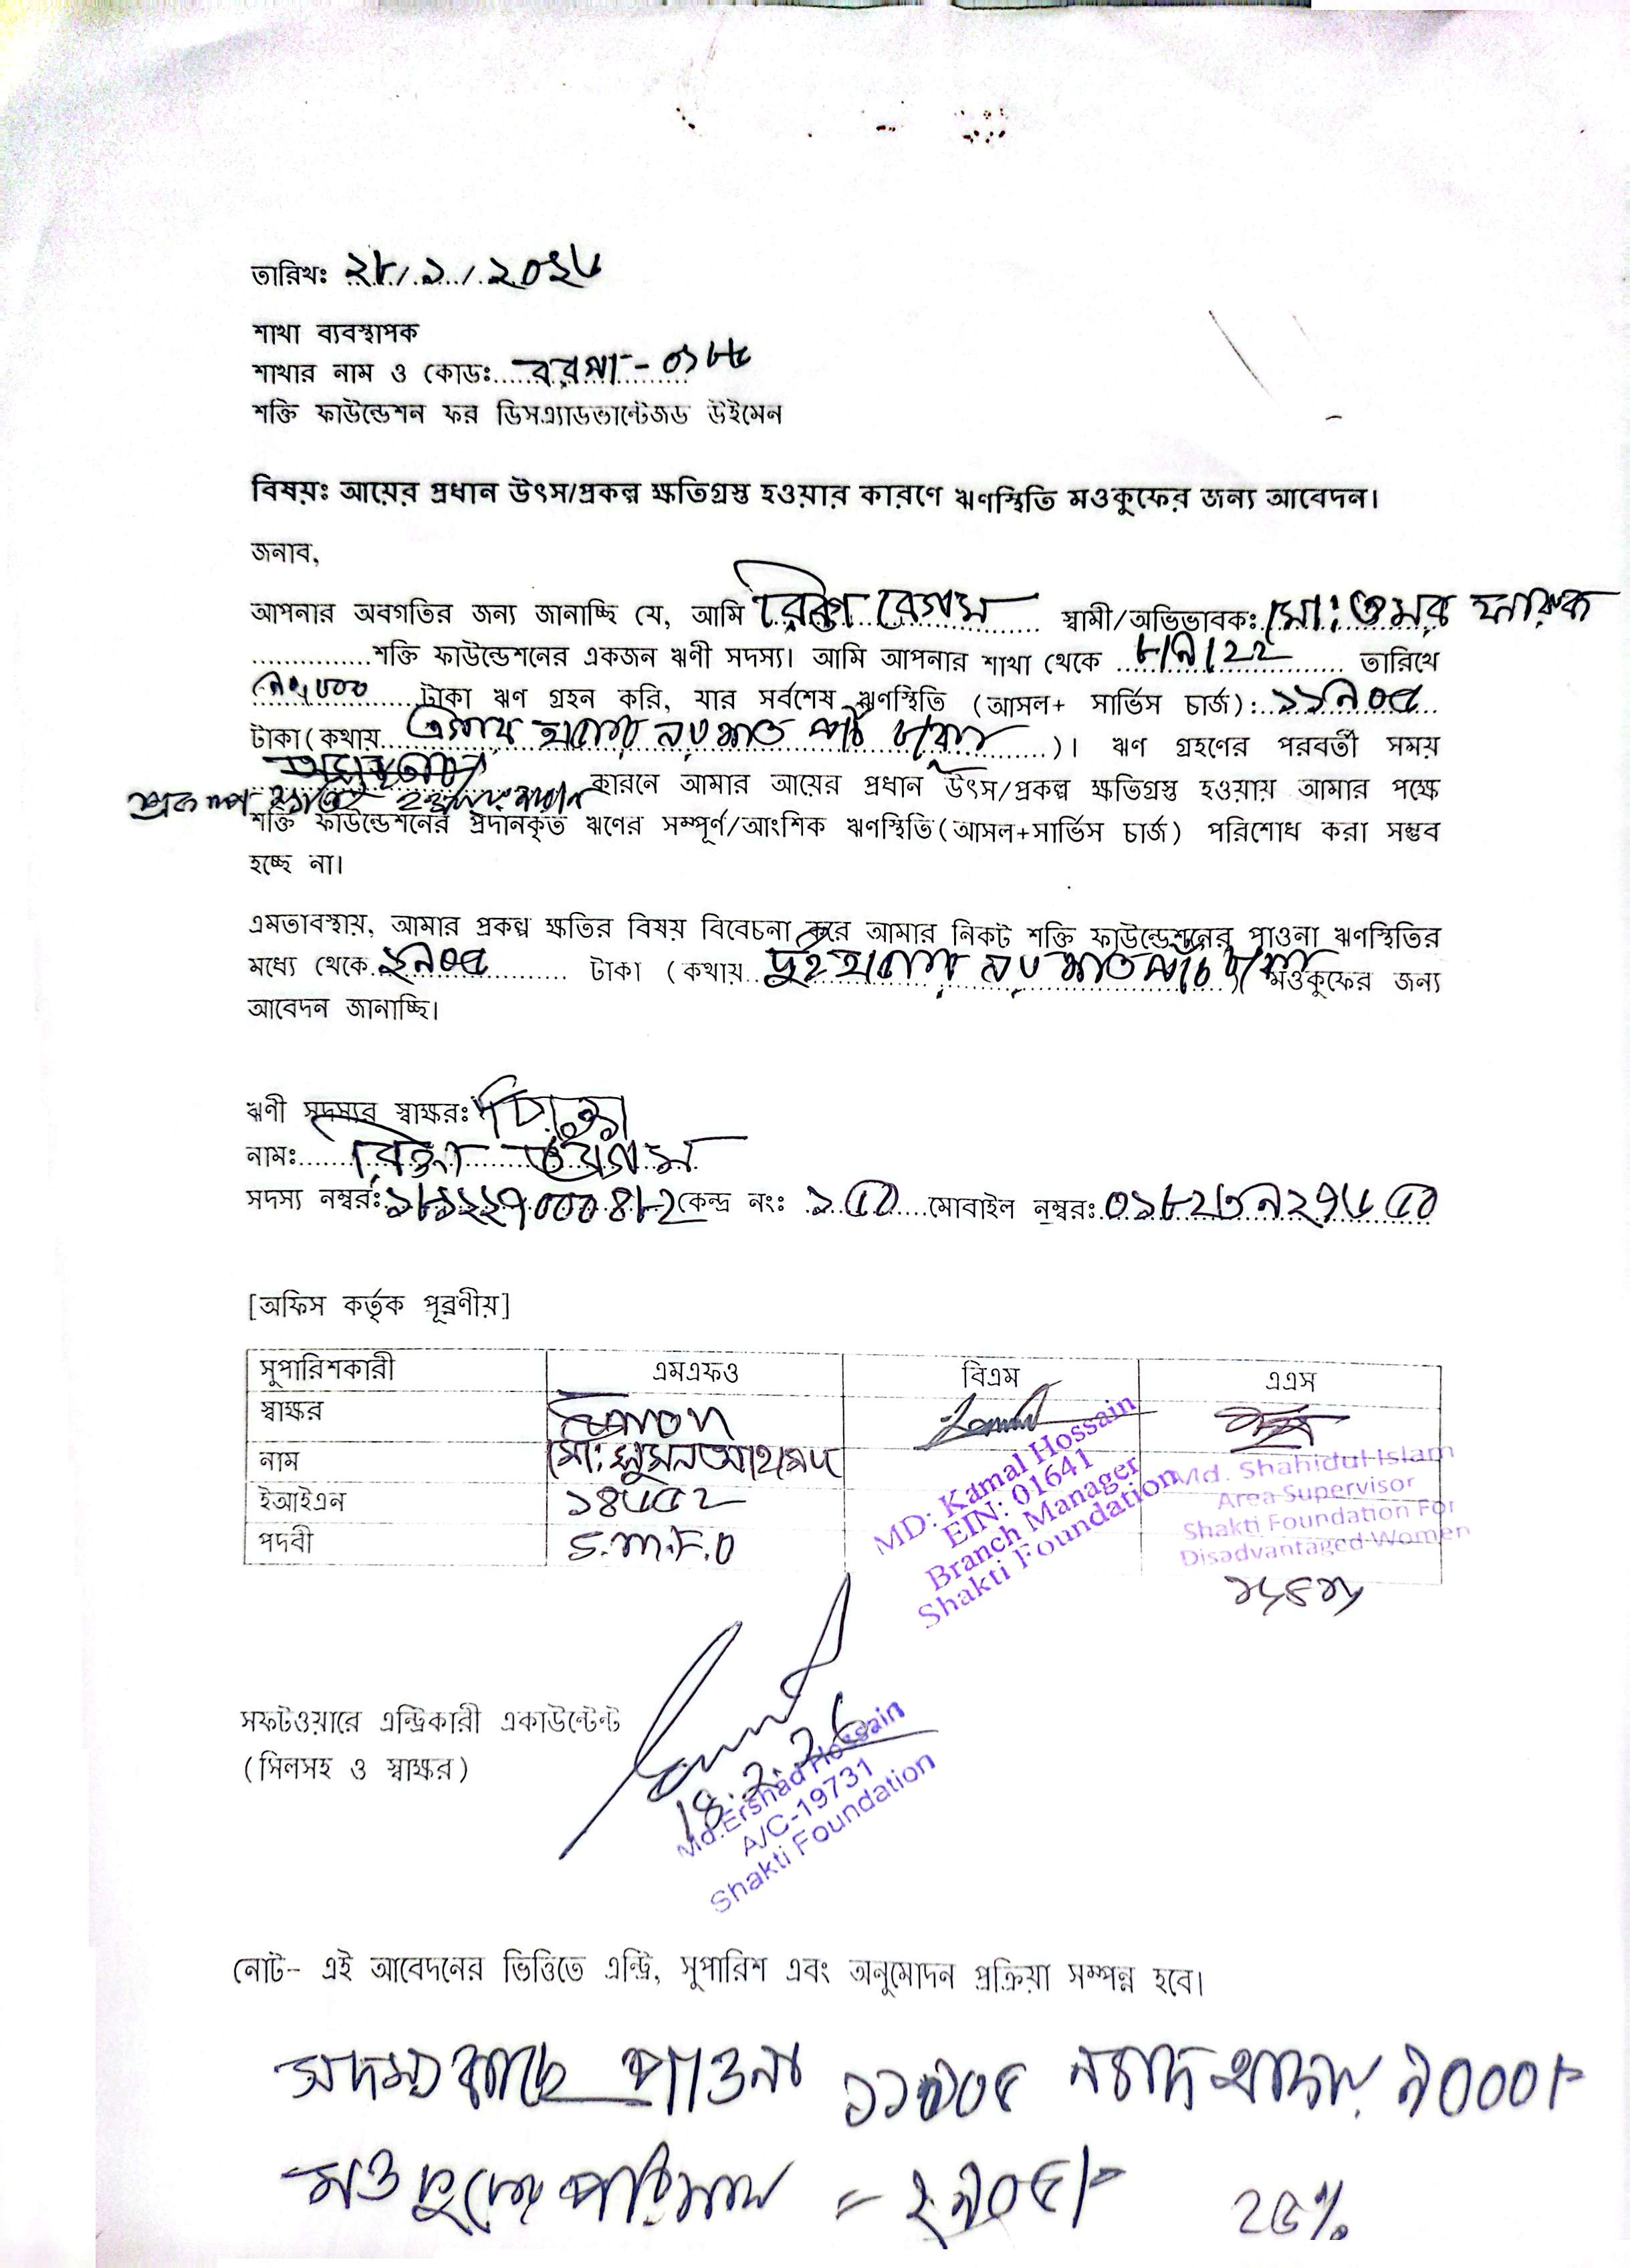 তারিখঃ ২৮/১/২০২৬
শাখা ব্যবস্থাপক
শাখার নাম ও কোডঃ বরগা - ০১৮৮
শক্তি ফাউন্ডেশন ফর ডিসএ্যাডভান্টেজড উইমেন
বিষয়ঃ আয়ের প্রধান উৎস/প্রকল্প ক্ষতিগ্রস্ত হওয়ার কারণে ঋণস্থিতি মওকুফের জন্য আবেদন।
জনাব,
আপনার অবগতির জন্য জানাচ্ছি যে, আমি বেগম স্বামী/অভিভাবকঃ মো: ওমর ফারুক
শক্তি ফাউন্ডেশনের একজন ঋণী সদস্য। আমি আপনার শাখা থেকে ৮/৯/22 তারিখে
টাকা ঋণ গ্রহন করি, যার সর্বশেষ ঋণস্থিতি (আসল+ সার্ভিস চার্জ): ১১৯০৫
টাকা(কথায় এগার হাজার নয় শত পাঁচ টাকা)। ঋণ গ্রহণের পরবর্তী সময়
প্রকল্প কারনে আমার আয়ের প্রধান উৎস/প্রকল্প ক্ষতিগ্রস্ত হওয়ায় আমার পক্ষে
শক্তি ফাউন্ডেশনের প্রদানকৃত ঋণের সম্পূর্ণ/আংশিক ঋণস্থিতি(আসল+সার্ভিস চার্জ) পরিশোধ করা সম্ভব
হচ্ছে না।
এমতাবস্থায়, আমার প্রকল্প ক্ষতির বিষয় বিবেচনা করে আমার নিকট শক্তি ফাউন্ডেশনের পাওনা ঋণস্থিতির
মধ্যে থেকে ২৯০৫ টাকা (কথায় দুই হাজার নয় শত পাঁচ টাকা) মওকুফের জন্য
আবেদন জানাচ্ছি।
ঋণী সদস্যর স্বাক্ষরঃ
নামঃ বেগম
সদস্য নম্বরঃ ১৮১২২৭০০০৪৮২ কেন্দ্র নংঃ ১৫০ মোবাইল নম্বরঃ ০১৮২৩৯২৭৬৫০
[অফিস কর্তৃক পূরণীয়]
সুপারিশকারী এমএফও বিএম এএস
স্বাক্ষর
নাম মো: সুমন আহামদ
ইআইএন ১৪৬৫২
পদবী S.M.F.O
MD: Kamal Hossain
EIN: 01641
Branch Manager
Shakti Foundation
Md. Shahidul Islam
Area Supervisor
Shakti Foundation For
Disadvantaged Women
সফটওয়ারে এন্ট্রিকারী একাউন্টেন্ট
(সিলসহ ও স্বাক্ষর)
18.2.26
Md.Ershad Hossain
A/C-19731
Shakti Foundation
নোট- এই আবেদনের ভিত্তিতে এন্ট্রি, সুপারিশ এবং অনুমোদন প্রক্রিয়া সম্পন্ন হবে।
সদস্য কাছে পাওনা ১১৯০৫ নগদ আদায় ৯০০০/-
মওকুফের পরিমান = ২৯০৫/- 25%